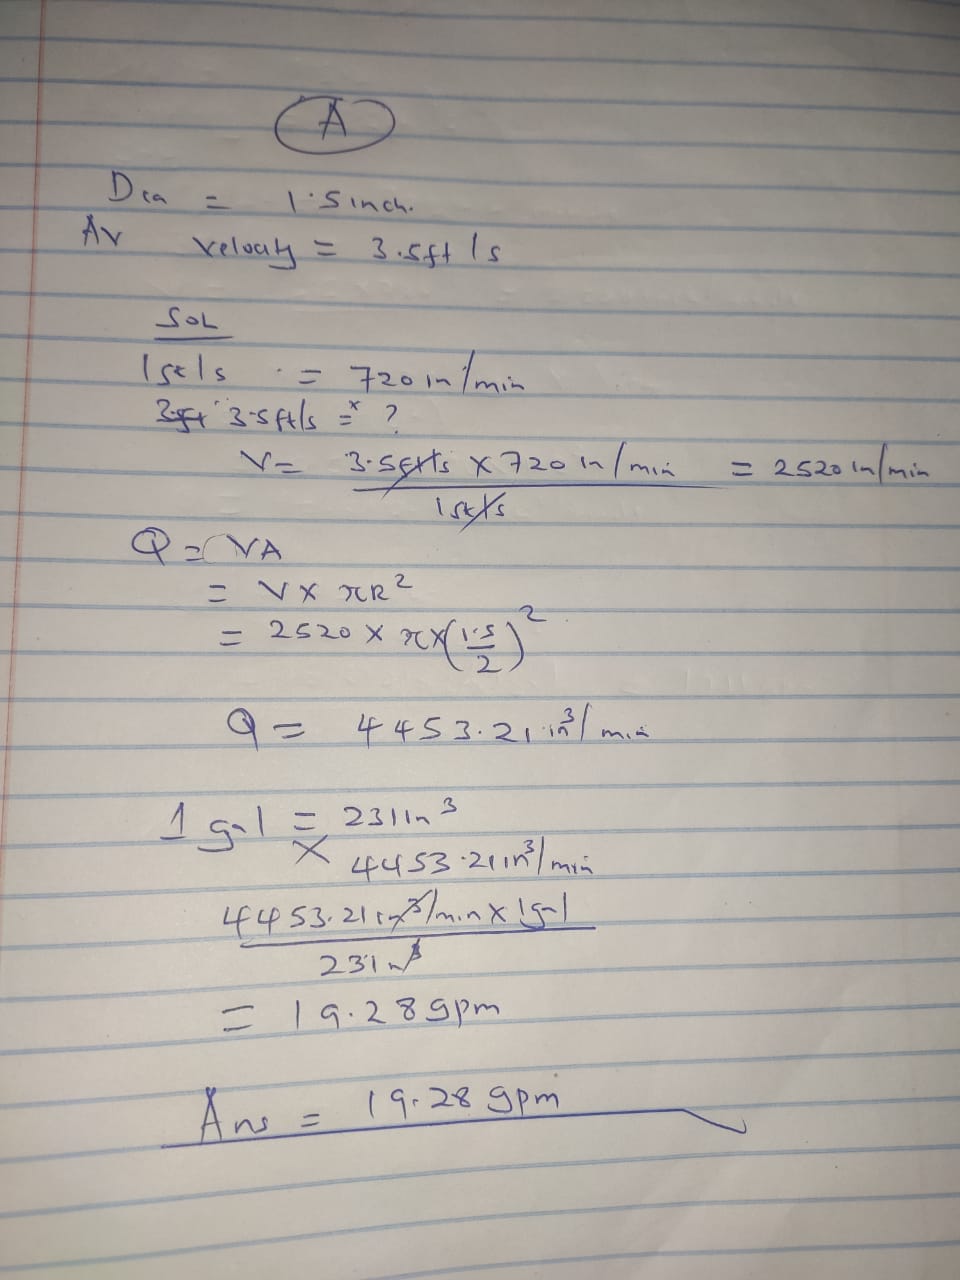 A
Dia = 1.5 inch.
Av velocity = 3.5ft/s
SOL
1ft/s = 720 in/min
3.5ft/s = x ?
V = 3.5ft/s x 720 in/min = 2520 in/min
1ft/s
Q = VA
= V x πR²
= 2520 x π x (1.5/2)²
Q = 4453.21 in³/min
1 gal = 231in³
X 4453.21in³/min
4453.21in³/min x 1gal
231in³
= 19.28gpm
Ans = 19.28 gpm